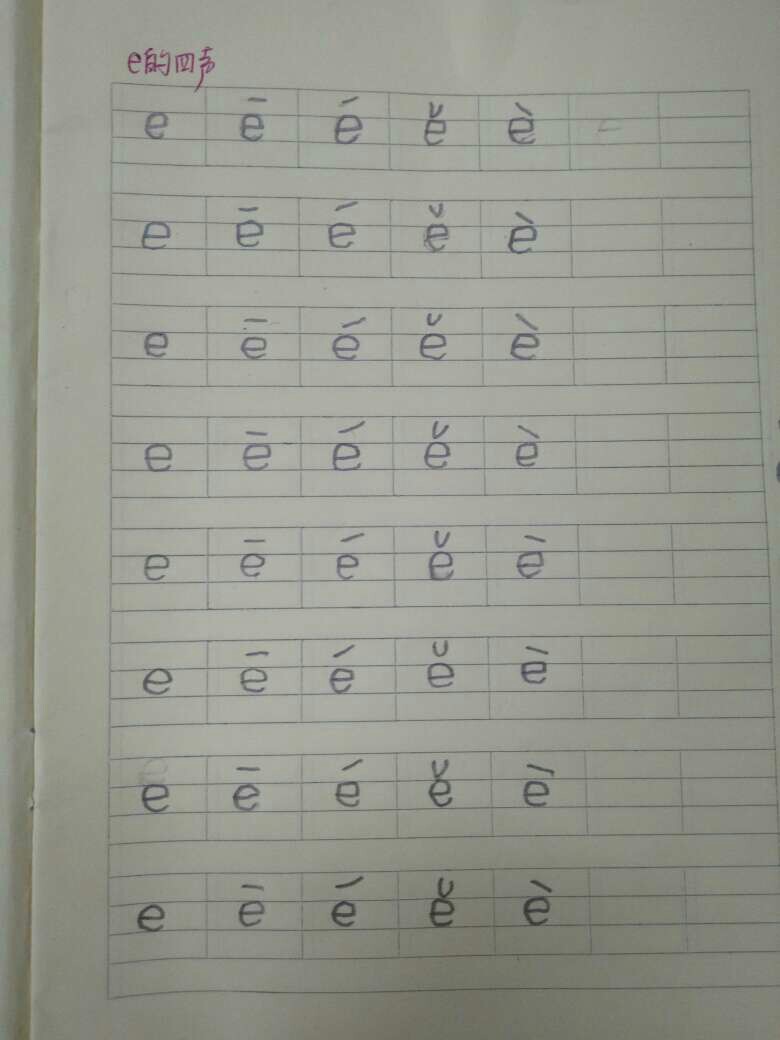 e的四声
e ē é ě è
e ē é ě è
e ē é ě è
e ē é ě è
e ē é ě è
e ē é ě è
e ē é ě è
e ē é ě è